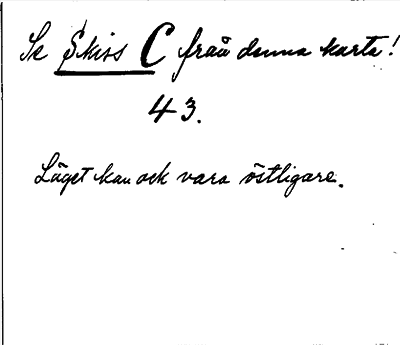 Se Skiss C från denna karta!
43.
Läget kan ock vara östligare.